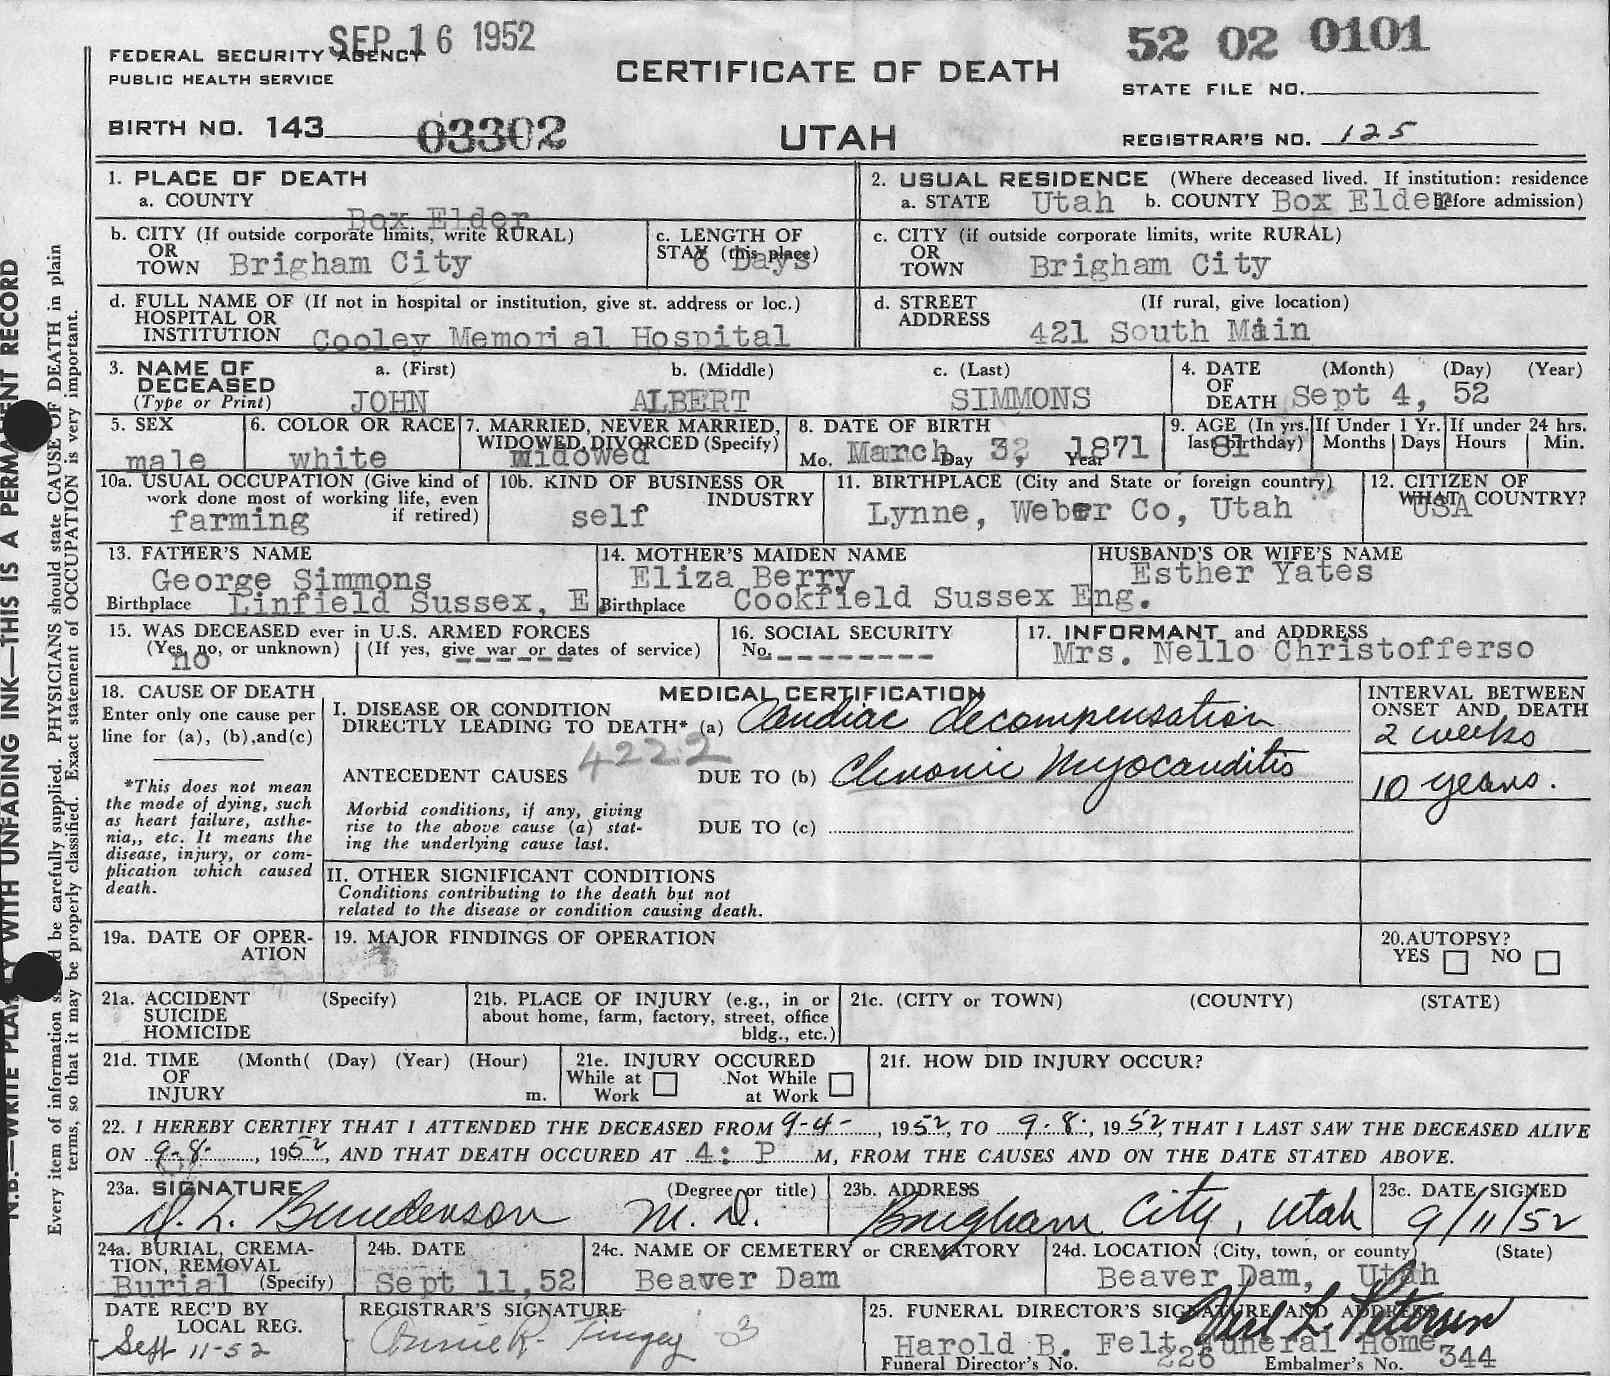 SEP 16 1952
52 02 0101
FEDERAL SECURITY AGENCY
PUBLIC HEALTH SERVICE
CERTIFICATE OF DEATH
STATE FILE NO.
BIRTH NO. 143 03302
UTAH
REGISTRAR'S NO. 125
1. PLACE OF DEATH
a. COUNTY
Box Elder
2. USUAL RESIDENCE (Where deceased lived. If institution: residence
a. STATE Utah b. COUNTY Box Elder before admission)
b. CITY (If outside corporate limits, write RURAL)
OR
TOWN Brigham City
c. LENGTH OF
STAY (this place)
6 Days
c. CITY (if outside corporate limits, write RURAL)
OR
TOWN Brigham City
d. FULL NAME OF (If not in hospital or institution, give st. address or loc.)
HOSPITAL OR
INSTITUTION Cooley Memorial Hospital
d. STREET (If rural, give location)
ADDRESS
421 South Main
3. NAME OF a. (First) b. (Middle) c. (Last)
DECEASED
(Type or Print) JOHN ALBERT SIMMONS
4. DATE (Month) (Day) (Year)
OF
DEATH Sept 4, 52
5. SEX
male
6. COLOR OR RACE
white
7. MARRIED, NEVER MARRIED,
WIDOWED, DIVORCED (Specify)
Widowed
8. DATE OF BIRTH
Mo. March Day 3, Year 1871
9. AGE (In yrs. last birthday)
81
If Under 1 Yr.
Months Days
If under 24 hrs.
Hours Min.
10a. USUAL OCCUPATION (Give kind of
work done most of working life, even
farming if retired)
10b. KIND OF BUSINESS OR
INDUSTRY
self
11. BIRTHPLACE (City and State or foreign country)
Lynne, Weber Co, Utah
12. CITIZEN OF
WHAT COUNTRY?
USA
13. FATHER'S NAME
George Simmons
Birthplace Linfield Sussex, E
14. MOTHER'S MAIDEN NAME
Eliza Berry
Birthplace Cookfield Sussex Eng.
HUSBAND'S OR WIFE'S NAME
Esther Yates
15. WAS DECEASED ever in U.S. ARMED FORCES
(Yes, no, or unknown) (If yes, give war or dates of service)
no
16. SOCIAL SECURITY
No.
17. INFORMANT and ADDRESS
Mrs. Nello Christofferso
18. CAUSE OF DEATH
Enter only one cause per
line for (a), (b),and(c)
*This does not mean
the mode of dying, such
as heart failure, asthe-
nia,, etc. It means the
disease, injury, or com-
plication which caused
death.
MEDICAL CERTIFICATION
I. DISEASE OR CONDITION
DIRECTLY LEADING TO DEATH* (a) Cardiac decompensation
4222
ANTECEDENT CAUSES DUE TO (b) Chronic Myocarditis
Morbid conditions, if any, giving
rise to the above cause (a) stat-
ing the underlying cause last.
DUE TO (c)
INTERVAL BETWEEN
ONSET AND DEATH
2 weeks
10 years.
II. OTHER SIGNIFICANT CONDITIONS
Conditions contributing to the death but not
related to the disease or condition causing death.
19a. DATE OF OPER-
ATION
19. MAJOR FINDINGS OF OPERATION
20.AUTOPSY?
YES NO
21a. ACCIDENT (Specify)
SUICIDE
HOMICIDE
21b. PLACE OF INJURY (e.g., in or
about home, farm, factory, street, office
bldg., etc.)
21c. (CITY or TOWN) (COUNTY) (STATE)
21d. TIME (Month( (Day) (Year) (Hour)
OF
INJURY m.
21e. INJURY OCCURED
While at Work
Not While at Work
21f. HOW DID INJURY OCCUR?
22. I HEREBY CERTIFY THAT I ATTENDED THE DECEASED FROM 9-4-, 1952, TO 9-8-, 1952, THAT I LAST SAW THE DECEASED ALIVE
ON 9-8-, 1952, AND THAT DEATH OCCURED AT 4: P M, FROM THE CAUSES AND ON THE DATE STATED ABOVE.
23a. SIGNATURE (Degree or title)
D. L. Bunderson M.D.
23b. ADDRESS
Brigham City, Utah
23c. DATE SIGNED
9/11/52
24a. BURIAL, CREMA-
TION, REMOVAL
Burial (Specify)
24b. DATE
Sept 11,52
24c. NAME OF CEMETERY or CREMATORY
Beaver Dam
24d. LOCATION (City, town, or county) (State)
Beaver Dam, Utah
DATE REC'D BY
LOCAL REG.
Sept 11-52
REGISTRAR'S SIGNATURE
25. FUNERAL DIRECTOR'S SIGNATURE AND ADDRESS
Harold B. Felt Funeral Home
Funeral Director's No. 226 Embalmer's No. 344
N.B.—WRITE PLAINLY WITH UNFADING INK—THIS IS A PERMANENT RECORD
Every item of information should be carefully supplied. PHYSICIANS should state CAUSE OF DEATH in plain
terms, so that it may be properly classified. Exact statement of OCCUPATION is very important.